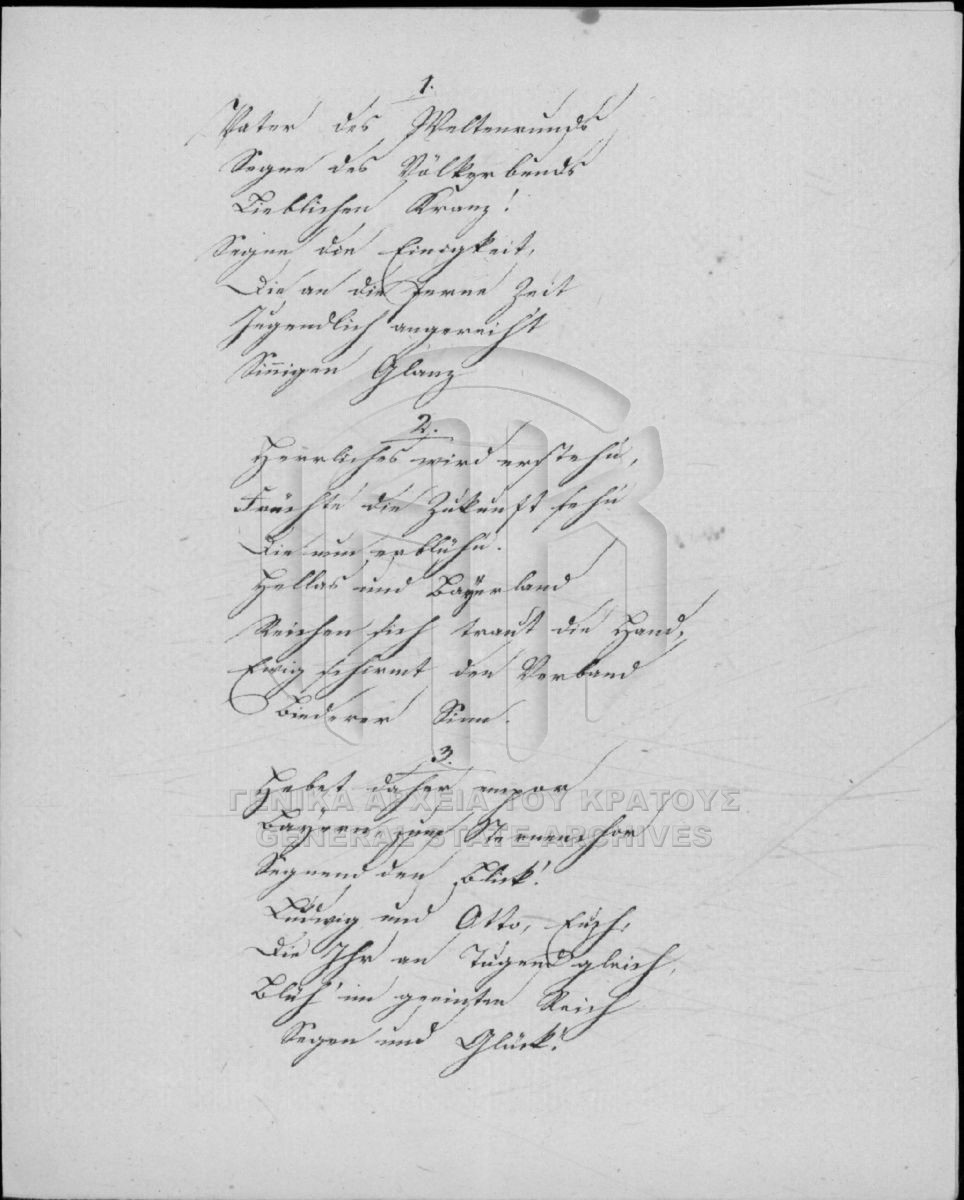 1.
Vater des Weltenrunds
Segne des Völkerbunds
Lieblichen Kranz!
Segne die Einigkeit,
Die an die ferne Zeit
Jugendlich angereiht
Sinnigen Glanz
2.
Herrliches wird erstehn,
Früchte die Zukunft sehn
Die nun erblühn.
Hellas und Bayerland
Reichen sich traut die Hand,
Ewig schirmt den Verband
Biederer Sinn.
3.
Hebet daher empor
Bayern zum Sternenchor
Segnend den Blick!
Ludwig und Otto, Euch,
Die Ihr an Tugend gleich,
Blüh' im geeinten Reich
Segen und Glück!
ΓΕΝΙΚΑ ΑΡΧΕΙΑ ΤΟΥ ΚΡΑΤΟΥΣ
GENERAL STATE ARCHIVES